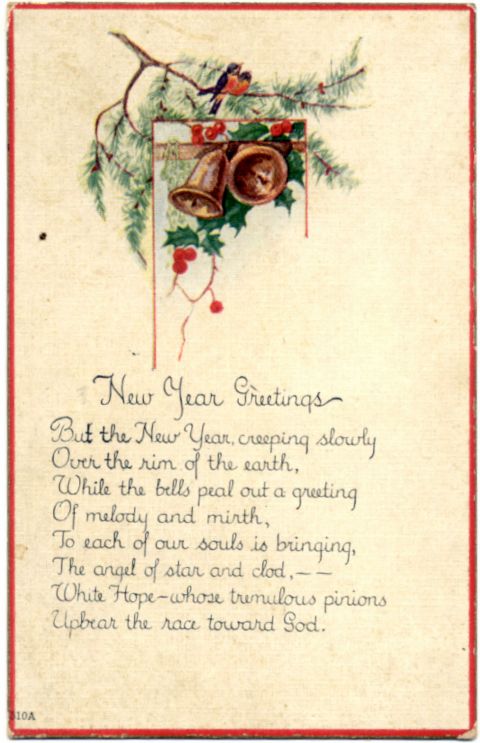 New Year Greetings
But the New Year, creeping slowly
Over the rim of the earth,
While the bells peal out a greeting
Of melody and mirth,
To each of our souls is bringing,
The angel of star and clod, – –
White Hope – whose tremulous pinions
Upbear the race toward God.
510A